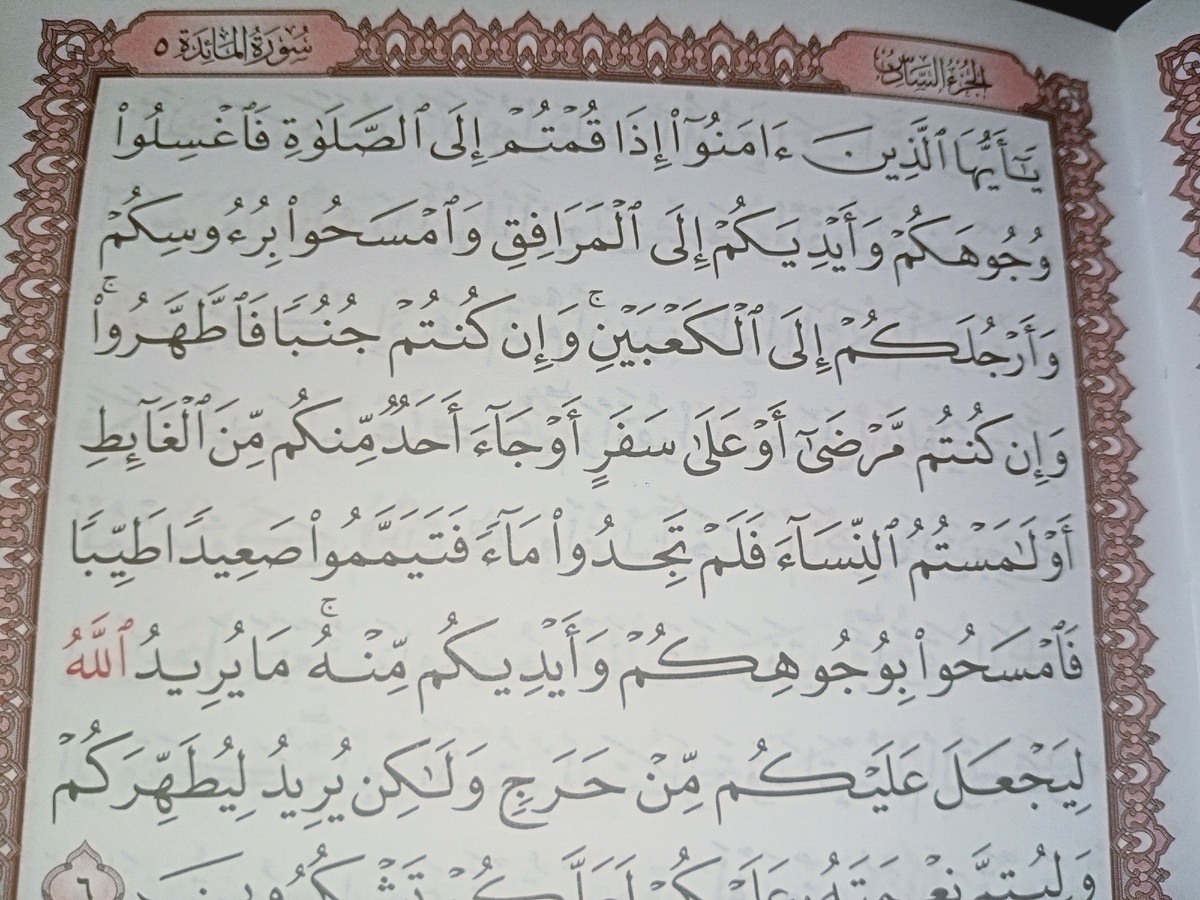 الجزء السادس
سورة المائدة ٥
يَٰٓأَيُّهَا ٱلَّذِينَ ءَامَنُوٓا۟ إِذَا قُمْتُمْ إِلَى ٱلصَّلَوٰةِ فَٱغْسِلُوا۟
وُجُوهَكُمْ وَأَيْدِيَكُمْ إِلَى ٱلْمَرَافِقِ وَٱمْسَحُوا۟ بِرُءُوسِكُمْ
وَأَرْجُلَكُمْ إِلَى ٱلْكَعْبَيْنِ ۚ وَإِن كُنتُمْ جُنُبًا فَٱطَّهَّرُوا۟ ۚ
وَإِن كُنتُم مَّرْضَىٰٓ أَوْ عَلَىٰ سَفَرٍ أَوْ جَآءَ أَحَدٌ مِّنكُم مِّنَ ٱلْغَآئِطِ
أَوْ لَٰمَسْتُمُ ٱلنِّسَآءَ فَلَمْ تَجِدُوا۟ مَآءً فَتَيَمَّمُوا۟ صَعِيدًا طَيِّبًا
فَٱمْسَحُوا۟ بِوُجُوهِكُمْ وَأَيْدِيكُم مِّنْهُ ۚ مَا يُرِيدُ ٱللَّهُ
لِيَجْعَلَ عَلَيْكُم مِّنْ حَرَجٍ وَلَٰكِن يُرِيدُ لِيُطَهِّرَكُمْ
وَلِيُتِمَّ نِعْمَتَهُۥ عَلَيْكُمْ لَعَلَّكُمْ تَشْكُرُونَ ٦